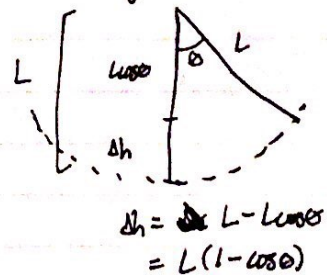 L
Lcosθ
θ
L
Δh
Δh = L - Lcosθ
= L (1 - cosθ)